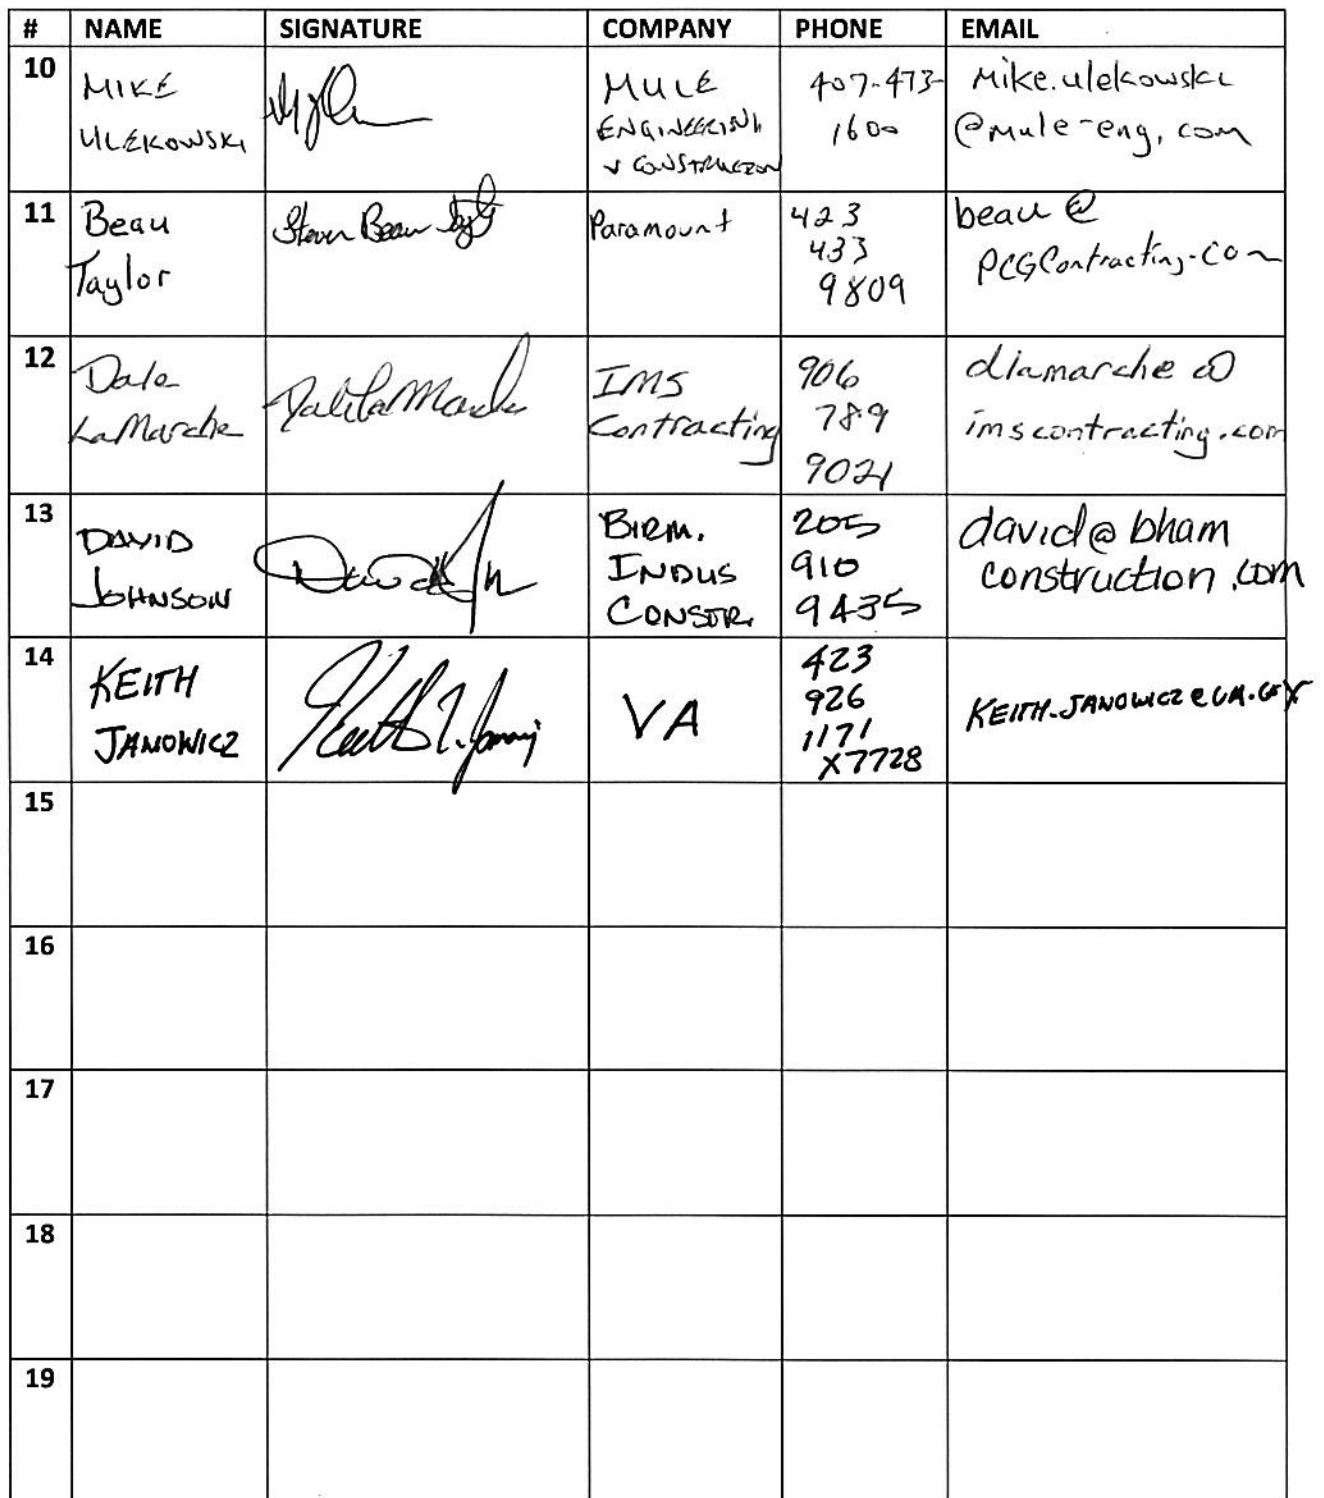 # NAME SIGNATURE COMPANY PHONE EMAIL
10
MIKE
ULEKOWSKI
MULE
ENGINEERING
& CONSTRUCTION
407-473-
1600
Mike.ulekowski
@mule-eng.com
11
Beau
Taylor
Steven Beau Taylor
Paramount
423
433
9809
beau@
PCGContracting.com
12
Dale
LaMarche
Dale LaMarche
IMS
Contracting
906
789
9021
dlamarche@
imscontracting.com
13
DAVID
JOHNSON
BIRM.
INDUS
CONSTR.
205
910
9435
david@bham
construction.com
14
KEITH
JANOWICZ
VA
423
926
1171
X7728
KEITH.JANOWICZ@VA.GOV
15
16
17
18
19